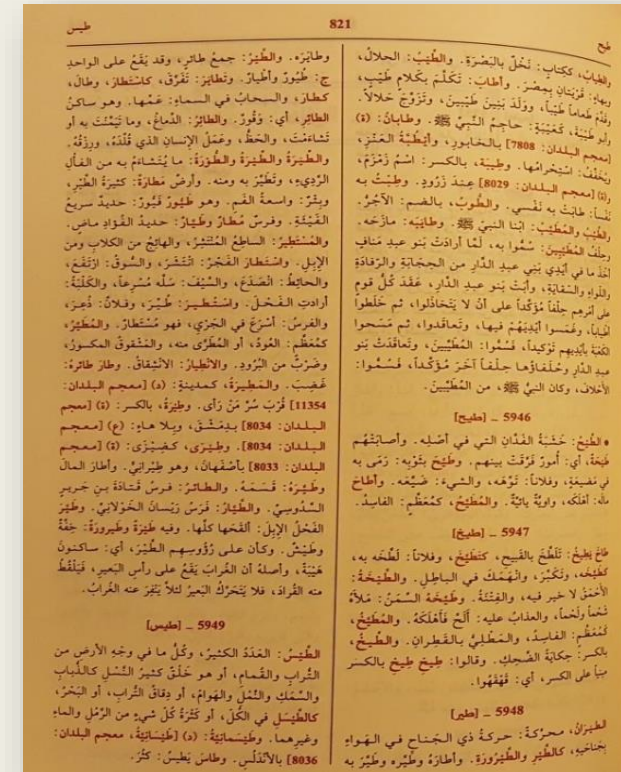 طيح
821
طيس
والطِّيابُ، ككِتابٍ: نَخْلٌ بالبَصْرَةِ. والطَّيِّبُ: الحلالُ،
وبهاءٍ: قَرْيَتانِ بِمِصْرَ. وأطابَ: تَكَلَّمَ بكَلامٍ طَيِّبٍ،
وقَدَّمَ طَعاماً طَيِّباً، ووَلَدَ بَنِينَ طَيِّبينَ، وتَزَوَّجَ حَلالاً.
وأبو طَيْبَةَ، كعَيْبَةٍ: حاجِمُ النبيِّ ﷺ. وطابانُ: (ة)
[معجم البلدان: 7808] بالخابورِ، وأيْطَبَةُ العَنْزِ،
ويُخَفَّفُ: اسْتِحْرامُها. وطِيبَة، بالكسرِ: اسْمُ زَمْزَمَ،
و(ة) [معجم البلدان: 8029] عِندَ زَرُودٍ. وطِبْتُ به
نَفْساً: طابَتْ به نَفْسِي. والطُّوبُ، بالضمِّ: الآجُرُّ.
والطَّيِّبُ والمُطَيَّبُ: ابْنا النبيِّ ﷺ. وطايَبَه: مازَحَه.
وحِلْفُ المُطَيَّبينَ: سُمُّوا به، لَمَّا أرادَتْ بَنو عبدِ مَنافٍ
أخْذَ ما في أيْدِي بَني عبدِ الدَّارِ من الحِجابَةِ والرِّفادَةِ
واللِّواءِ والسِّقايَةِ، وأبَتْ بَنو عبدِ الدَّارِ، عَقَدَ كُلُّ قومٍ
على أمْرِهِم حِلْفاً مُؤَكَّداً على أنْ لا يَتَخاذَلُوا، ثم خَلَطوا
أطْياباً، وغَمَسوا أيْدِيَهُمْ فيها، وتَعاقَدوا، ثم مَسَحوا
الكَعْبَةَ بأيْدِيهِم تَوْكيداً، فَسُمُّوا: المُطَيَّبينَ، وتَعاقَدَتْ بَنو
عبدِ الدَّارِ وحُلَفاؤُها حِلْفاً آخَرَ مُؤَكَّداً، فَسُمُّوا:
الأحْلافَ، وكان النبيُّ ﷺ، من المُطَيَّبينَ.
5946 ـ [طيح]
• الطَّيْحُ: خَشَبَةُ الفَدَّانِ التي في أصْلِهِ. وأصابَتْهُم
طَيْحَةٌ، أي: أُمورٌ فَرَّقَتْ بينهم. وطَيَّحَ بثَوْبِهِ: رَمَى به
في مَضِيعَةٍ، وفلاناً: تَوَّهَه، والشيءَ: ضَيَّعَه. وأطاحَ
مالَه: أهْلَكَه، واوِيَّةٌ يائيَّةٌ. والمُطَيَّحُ، كمُعَظَّمٍ: الفاسِدُ.
5947 ـ [طيخ]
طاخَ يَطِيخُ: تَلَطَّخَ بالقَبيحِ، كتَطَيَّخَ، وفلاناً: لَطَّخَه به،
كطَيَّخَه، وتَكَبَّرَ، وانْهَمَكَ في الباطِلِ. والطَّيْخَةُ:
الأحْمَقُ لا خير فيه، والفِتْنَةُ. وطَيَّخَهُ السِّمَنُ: مَلأَهُ
شَحْماً ولَحْماً، والعذابُ عليه: ألَحَّ فَأهْلَكَهُ. والمُطَيَّخُ،
كمُعَظَّمٍ: الفاسِدُ، والمَطْلِيُّ بالقَطِرانِ. والطِّيخُ،
بالكسرِ: حِكايَةُ الضَّحِكِ. وقالوا: طِيخِ طِيخِ بالكسر
مبنياً على الكسر، أي: قَهْقَهُوا.
5948 ـ [طير]
الطَّيَرَانُ، محرَّكةً: حركةُ ذي الجَناحِ في الهَواءِ
بِجَناحَيْهِ، كالطَّيْرِ والطَّيْرُورَةِ. وأطارَهُ وطَيَّرَه وطَيَّرَ به
وطايَرَه. والطَّيْرُ: جمعُ طائِرٍ، وقد يَقَعُ على الواحِدِ
ج: طُيُورٌ وأطْيارٌ. وتَطايَرَ: تَفَرَّقَ، كاسْتَطارَ، وطالَ،
كطارَ، والسحابُ في السماءِ: عَمَّها. وهو ساكنُ
الطائِرِ، أي: وَقُورٌ. والطائِرُ: الدِّماغُ، وما تَيَمَّنْتَ به أو
تَشاءَمْتَ، والحَظُّ، وعَمَلُ الإِنسانِ الذي قُلِّدَهُ، ورِزْقُهُ.
والطِّيَرَةُ والطِّيْرَةُ والطُّوْرَةُ: ما يُتَشاءَمُ به من الفَألِ
الرَّديءِ، وتَطَيَّرَ به ومنه. وأرضٌ مَطارَةٌ: كثيرَةُ الطَّيْرِ،
وبِئْرٌ: واسعةُ الفَمِ. وهو طَيُّورٌ فَيُّورٌ: حديدٌ سريعُ
الفَيْئَةِ. وفرسٌ مُطارٌ وطَيَّارٌ: حديدُ الفُؤادِ ماضٍ.
والمُسْتَطِيرُ: الساطِعُ المُنْتَشِرُ، والهائِجُ من الكلابِ ومن
الإِبِلِ. واسْتَطارَ الفَجْرُ: انْتَشَرَ، والسُّوقُ: ارْتَفَعَ،
والحائِطُ: انْصَدَعَ، والسَّيْفَ: سَلَّه مُسْرِعاً، والكَلْبَةُ:
أرادتِ الفَحْلَ. واسْتُطيرَ: طُيِّرَ، وفلانٌ: ذُعِرَ،
والفرسُ: أسْرَعَ في الجَرْيِ، فهو مُسْتَطارٌ. والمُطَيَّرُ،
كمُعَظَّمٍ: العُودُ، أو المُطَرَّى منه، والمَشْقوقُ المكسورُ،
وضَرْبٌ من البُرُودِ. والانْطِيارُ: الانْشِقاقُ. وطارَ طائرُهُ:
غَضِبَ. والمَطِيرَةُ، كمدينةٍ: (د) [معجم البلدان:
11354] قُرْبَ سُرَّ مَنْ رَأى. وطِيْرَةُ، بالكسر: (ة) [معجم
البلدان: 8034] بدِمَشْقَ، وبِلا هاءٍ: (ع) [معجم
البلدان: 8034]. وطِيْرَى، كضِيْزَى: (ة) [معجم
البلدان: 8033] بأصْفَهانَ، وهو طِيْرانِيٌّ. وأطارَ المالَ
وطَيَّرَهُ: قَسَمَهُ. والطائرُ: فرسُ قَتادَةَ بنِ جَريرٍ
السَّدُوسِيِّ. والطَّيَّارُ: فَرَسُ رَيْسانَ الخَوْلانِيِّ. وطَيَّرَ
الفَحْلُ الإِبِلَ: ألْقَحَها كلَّها. وفيه طَيْرَةٌ وطَيْرورَةٌ: خِفَّةٌ
وطَيْشٌ. وكأن على رُؤُوسِهِم الطَّيْرَ، أي: ساكنونَ
هَيْبَةً، وأصلُه أن الغُرابَ يَقَعُ على رأسِ البَعيرِ، فَيَلْقُطُ
منه القُرادَ، فلا يَتَحَرَّكُ البعيرُ لئلاَّ يَنْفِرَ عنه الغُرابُ.
5949 ـ [طيس]
الطَّيْسُ: العَدَدُ الكثيرُ، وكُلُّ ما في وجْهِ الأرضِ من
التُّرابِ والقُمامِ، أو هو خَلْقٌ كثيرُ النَّسْلِ كالذُّبابِ
والسَّمَكِ والنَّمْلِ والهَوامِّ، أو دِقاقُ التُّرابِ، أو البَحْرُ،
كالطَّيْسَلِ في الكُلِّ، أو كَثْرَةُ كُلِّ شيءٍ من الرَّمْلِ والماءِ
وغيرِهما. وطَيْسَمانِيَّةُ: (د) [طَيْسَانِيَّةُ، معجم البلدان:
8036] بالأنْدَلُسِ. وطاسَ يَطِيسُ: كَثُرَ.